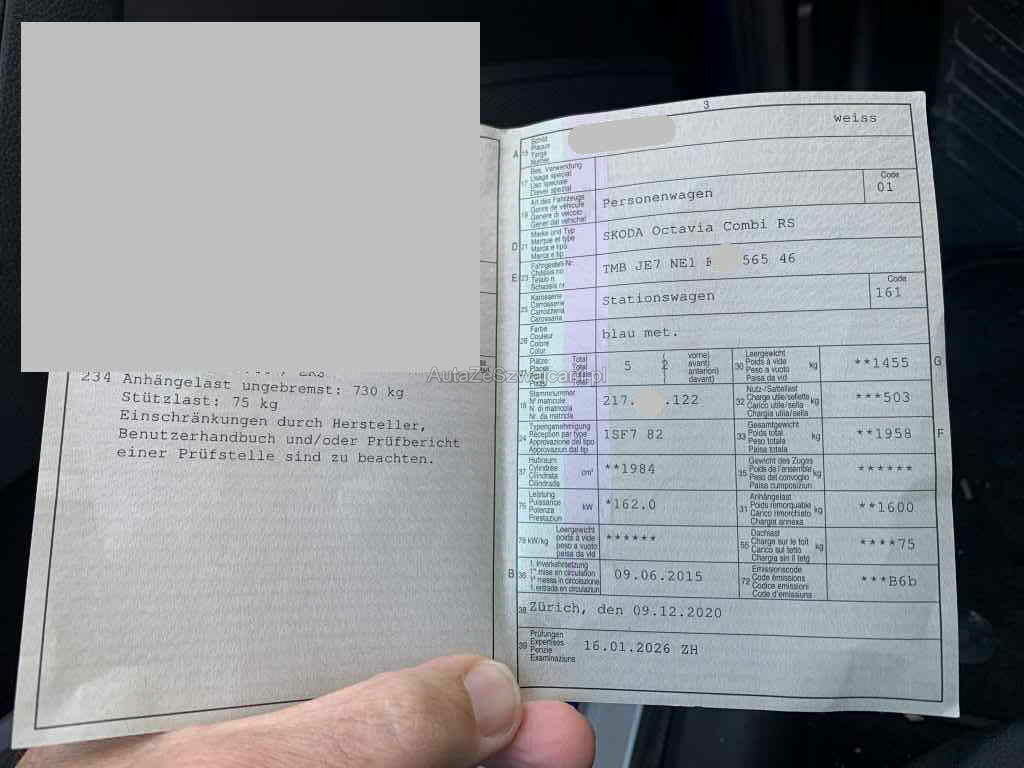 234 Anhängelast ungebremst: 730 kg
Stützlast: 75 kg
Einschränkungen durch Hersteller,
Benutzerhandbuch und/oder Prüfbericht
einer Prüfstelle sind zu beachten.
3
A 15 Schild Plaque Targa Numer weiss
17 Bes. Verwendung Usage spécial Uso speciale Diever spezial
19 Art des Fahrzeugs Genre de véhicule Genere di veicolo Gener dal vehichel Personenwagen Code 01
D 21 Marke und Typ Marque et type Marca e tipo Marca e tip SKODA Octavia Combi RS
E 23 Fahrgestell-Nr. Châssis no Telaio n. Schassis nr. TMB JE7 NE1 565 46
25 Karosserie Carrosserie Carrozzeria Carossaria Stationswagen Code 161
26 Farbe Couleur Colore Colur blau met.
Plätze: Places: Posti: Plazs: Total Total Totale Total 5 2 vorne) avant) anteriori) davant) 30 Leergewicht Poids à vide Peso a vuoto Paisa da vid kg **1455 G
18 Stammnummer N° matricule N. di matricola Nr. da matricla 217. .122 32 Nutz-/Sattellast Charge utile/sellette Carico utile/sella Chargia utila/sella kg ***503
24 Typengenehmigung Réception par type Approvazione del tipo Approvaziun dal tip 1SF7 82 33 Gesamtgewicht Poids total Peso totale Paisa totala kg **1958 F
37 Hubraum Cylindrée Cilindrata Cilindrada cm³ **1984 35 Gewicht des Zuges Poids de l'ensemble Peso del convoglio Paisa cumposiziun kg ******
76 Leistung Puissance Potenza Prestaziun kW *162.0 31 Anhängelast Poids remorquable Carico rimorchiato Chargia annexa kg **1600
78 kW/kg Leergewicht poids à vide peso a vuoto paisa da vid ****** 55 Dachlast Charge sur le toit Carico sul tetto Chargia sin il tetg kg ****75
B 36 1. Inverkehrsetzung 1re mise en circulation 1a messa in circolazione 1. entrada en circulaziun 09.06.2015 72 Emissionscode Code émissions Codice emissioni Code d'emissiuns ***B6b
38 Zürich, den 09.12.2020
39 Prüfungen Expertises Perizie Examinaziuns 16.01.2026 ZH
AutaZeSzwajcarii.pl